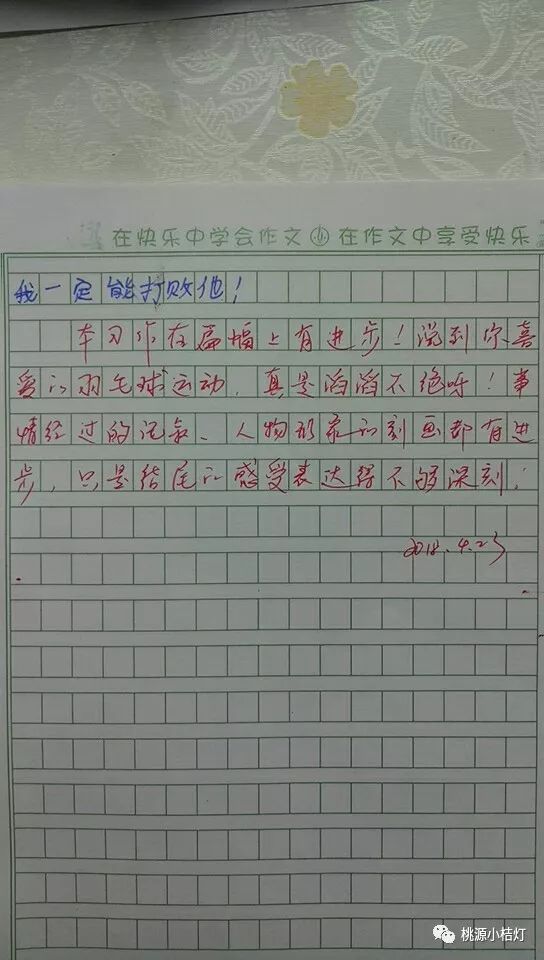 在快乐中学会作文 在作文中享受快乐
我一定能打败他！
本习作在篇幅上有进步！说到你喜
爱的羽毛球运动，真是滔滔不绝呀！事
情经过的记叙、人物形象的刻画都有进
步，只是结尾的感受表达得不够深刻。
2018.4.23
桃源小桔灯